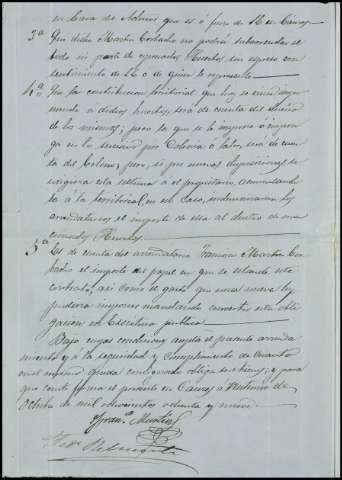 en casa de Antonio que es ó fuere de H en Cairos
3ª Que dicho Martin Corbacho no podrá subarrendar el
todo ni parte de espresados Huertos, sin espreso con-
sentimiento de la o de quien le represente
4ª Que la contribucion territorial que hoy se viene impo-
niendo a dichos huertos, será de cuenta del dueño
de los mismos; pero la que se le impone ó impon-
ga en lo sucesivo por Colonia o labor, será de cuen-
ta del Colono; pero, si por nuevas disposiciones se
exigiria esta última á el propietario, aumentando-
la á la territorial, en ese caso, indemnizaran los
arrendatarios el importe de ella al dueño de men-
cionados Huertos.
5ª Es de cuenta del arrendatario Francisco Martin Cor-
bacho el importe del papel en que se estiende este
contrato, así como el gasto que
pudiera imponer mandando convertir esta obli-
gacion en Escritura publica
Bajo cuyas condiciones acepta el presente arrenda
miento y á la seguridad y cumplimiento de cuanto
en el mismo queda consignado obliga sus bienes, y para
que conste firma el presente en Cairos á veintiuno de
Octubre de mil ochocientos ochenta y nueve.
Franco Martin